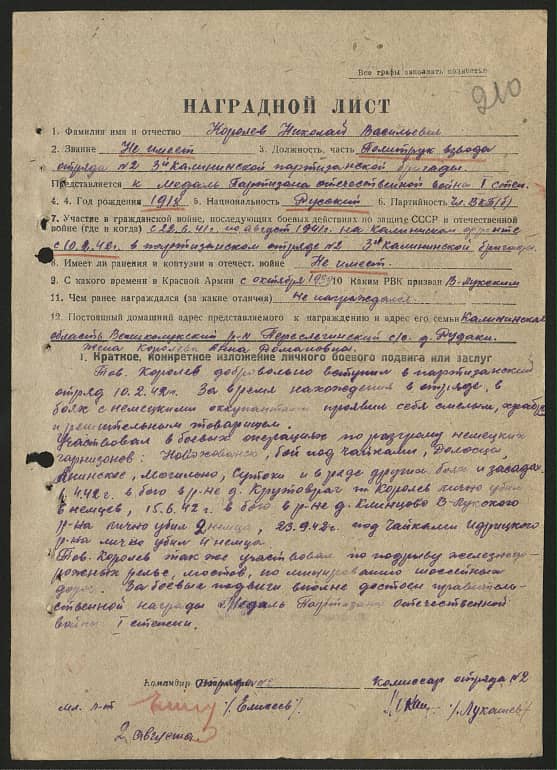 Все графы заполнять полностью
210
НАГРАДНОЙ ЛИСТ
1. Фамилия имя и отчество Королев Николай Васильевич
2. Звание Не имеет 3. Должность, часть Политрук взвода
отряда №2 3й Калининской партизанской бригады.
Представляется к медаль Партизана отечественной война I степ.
4. 4. Год рождения 1918 5. Национальность Русский 6. Партийность Чл. ВКП(б)
7. Участие в гражданской войне, последующих боевых действиях по защите СССР и отечественной
войне (где и когда) с 22.6.41г по август 1941г. на Калининском фронте
с 10.2.42г. в партизанском отряде №2 3й Калининской бригады.
8. Имеет ли ранения и контузии в отечест. войне Не имеет.
9. С какого времени в Красной Армии с октября 10 Каким РВК призван В-Лукским
11. Чем ранее награждался (за какие отличия) не награждался.
12. Постоянный домашний адрес представляемого к награждению и адрес его семьи Калининская
область Великолукский р-н Переслегинский с/с. д. Рудаки.
жена Королева Анна Романовна.
I. Краткое, конкретное изложение личного боевого подвига или заслуг
Тов. Королев добровольно вступил в партизанский
отряд 10.2.42г. За время нахождения в отряде, в
боях с немецкими оккупантами проявил себя смелым, храбрым
и решительным товарищем.
Участвовал в боевых операциях по разгрому немецких
гарнизонов: бой под Чайками, Долосцы,
Могильно, Сутоки и в ряде других боях и засадах.
4.42г. в бою в р-не д. Крутовраг т. Королев лично убил
немцев, 15.6.42г. в бою в р-не д. Клинцово В-Лукского
р-на лично убил 2 немца, 23.9.42г. под Чайками Идрицкого
р-на лично убил 4 немца.
Тов. Королев так же участвовал по подрыву железнодо-
рожных рельс, мостов, по минированию шоссейных
дорог. За боевые подвиги в войне достоен правитель-
ственной награды Медаль Партизана отечественной
войны I степени.
Командир Комиссар отряда №2
мл. л-т /Лукашев/
2 августа